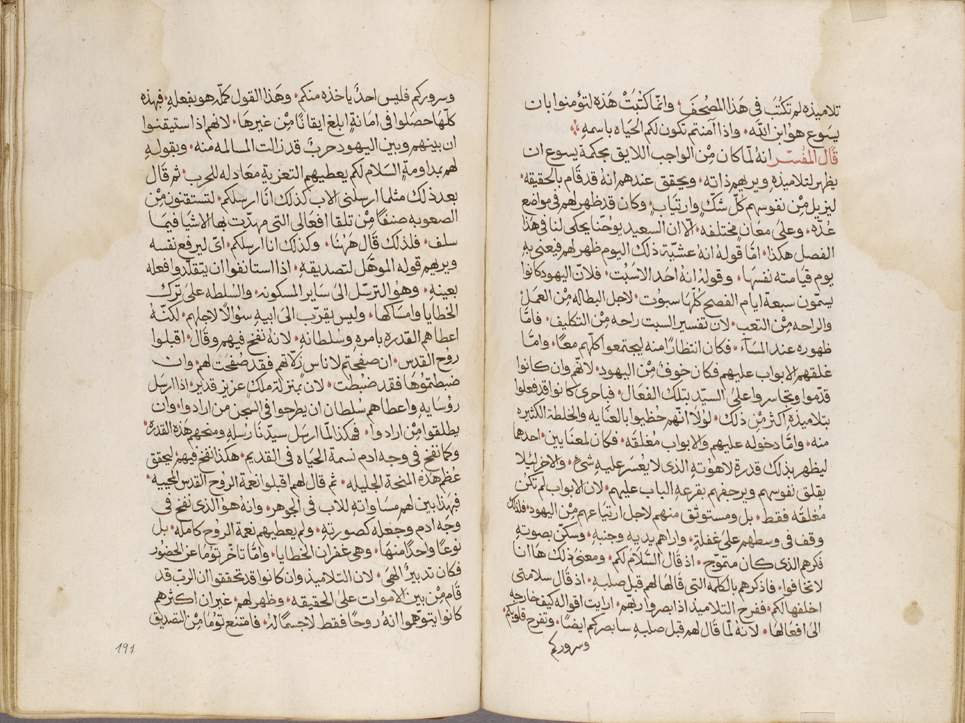 تلاميذه لم تكتب في هذا المصحف٠ وانما كتبت هذه لتؤمنوا بان
يسوع هو ابن الله٠ واذا آمنتم تكون لكم الحياه باسمه
قال المفسر انه لما كان من الواجب اللايق بحكمة يسوع ان
يظهر لتلاميذه ويريهم ذاته٠ ويحقق عندهم انه قد قام بالحقيقه٠
ليزيل من نفوسهم كل شك وارتياب٠ وكان قد ظهر لهم في مواضع
عدة٠ وعلى معان مختلفه٠ الا ان السعيد يوحنا يحكى لنا في هذا
الفصل هكذا٠ اما قوله انه عشية ذلك اليوم ظهر لهم فيعنى به
يوم قيامته نفسها٠ وقوله انه احد السبت٠ فلان اليهود كانوا
يسمون سبعة ايام الفصح كلها سبوت٠ لاجل البطاله من العمل
والراحه من التعب٠ لان تفسير السبت راحه من التكليف٠ فاما
ظهوره عند المسآء٠ فكان انتظارا منه ليجتمعوا كلهم معا٠ واما
غلقهم الابواب عليهم فكان خوفا من اليهود٠ لانهم وان كانوا
قدموا وتجاسروا على السيد بتلك الفعال٠ فباحرى كانوا قد فعلوا
بتلاميذه اكثر من ذلك٠ لولا انهم حظيوا بالعنايه والخلطه الكثيره
منه٠ واما دخوله عليهم والابواب مغلقه٠ فكان لمعنايين٠ احدهما
ليظهر بذلك قدرة لاهوته الذى لا يعسر عليه شئ٠ والاخر ليلا
يقلق نفوسهم ويرجفهم بقرعه الباب عليهم٠ لان الابواب لم تكن
مغلقه فقط٠ بل ومستوثق منهم لاجل ارتياعهم من اليهود٠
وقف في وسطهم على غفلة٠ واراهم يديه وجنبه٠ وسكن بصوته
فكرهم الذى كان متموج٠ اذ قال السلام لكم٠ ومعنى ذلك ها انا
لا تخافوا٠ فاذكرهم بالكلمه التى قالها لهم قبل صلبه٠ اذ قال سلامتى
اخلفها لكم٠ ففرح التلاميذ اذ ابصروا ربهم٠ ارايت اقواله كيف خارجه
الى افعالها٠ لانه لما قال لهم قبل صلبه سابصركم ايضا٠ وتفرح قلوبكم
وسروركم
وسروركم فليس احد ياخذه منكم٠ وهذا القول كله هو بفعله٠ فبهذه
كلها حصلوا في امانة ابلغ ايقانا من غيرها٠ لانهم اذ استيقنوا
ان بينهم وبين اليهود حرب قد زالت المسالمه منه٠ وبقوله
لهم بمداومة السلام لكم يعطيهم التعزية معادله للحرب٠ ثم قال
بعد ذلك مثلما ارسلنى الاب كذلك انا ارسلكم٠ لتستقنون من
الصعوبه صنفا من تلقا افعالى التى مهدت بها الاشيا فيما
سلف٠ فلذلك قال ههنا٠ وكذلك انا ارسلكم٠ اى ليرفع نفسه
ويريهم قوله الموهل لتصديقه٠ اذا استانفوا ان يتقلدوا فعله
بعينه٠ وهو الترسل الى ساير المسكونه٠ والسلطه على ترك
الخطايا وامساكها٠ وليس يقرب الى ابيه سؤالا لاجلهم٠ لكنه
اعطاهم القدره بامره وسلطانه٠ لانه نفخ فيهم وقال٠ اقبلوا
روح القدس٠ ان صفحتم لاناس زلاتهم فقد صفحت لهم٠ وان
ضبطتموها فقد ضبطت٠ لان بمنزلة ملك عزيز قدير٠ اذا ارسل
رؤسايه واعطاهم سلطان ان يطرحوا في السجن من ارادوا٠ وان
يطلقوا من ارادوا٠ فهكذا لما ارسل سيدنا رسله ومنحهم هذه القدره٠
وكما نفخ في وجه ادم نسمة الحياه في القديم٠ هكذا نفخ فيهم ليحقق
عظم هذه المنحة الجليله٠ ثم قال لهم اقبلوا نعمة الروح القدس المحييه٠
فبهذا بين لهم مساواته للاب في الجوهر٠ وانه هو الذى نفخ في
وجه ادم وجعله كصورته٠ ولم يعطيهم نعمة الروح كامله٠ بل
نوعا واحدا منها٠ وهى غفران الخطايا٠ واما تاخر توما عن الحضور
فكان تدبير الهى٠ لان التلاميذ وان كانوا قد تحققوا ان الرب قد
قام من بين الاموات على الحقيقه٠ وظهر لهم٠ غير ان اكثرهم
كانوا يتوهموا انه روحا فقط لا جسما له٠ فامتنع توما من التصديق
191